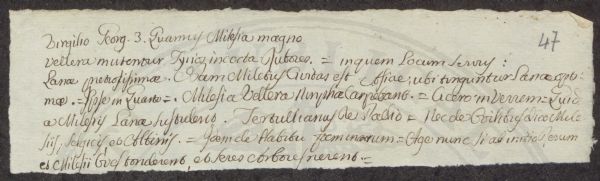 Virgilio Georg. 3. Quamvis Milesia magno
47
vellera mutentur Tyrios incocta Rubores. = in quem Locum Servius:
Lanæ pretiosissimæ. Nam Miletus Civitas est Asiae, ubi tinguntur Lanæ opti-
mæ. = Ipse in Quarto = . Milesia Vellera Nymphæ Carpebant. = Cicero in Verrem = Quid
a Milesiis Lanæ sustulerit. Tertullianus de Pallio = Nec de Ovibus dico Mile-
siis, Selgicis, et Altinis. = Idem de Habitu fæminarum = Age nunc si ab initio rerum
et Milesii Oves tonderent, et Seres arbores nerent. =